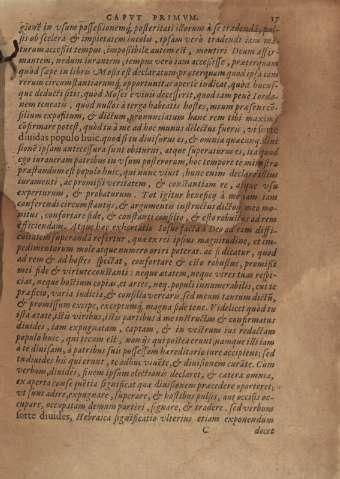 CAPVT PRIMVM. 17
gionē in vsum possessionemq́; posteritati illorum à se tradendā, pul-
sis ob scelera & impietatem incolis, ipsam verò tradendi item
turum accepit tempus, impossibile autem est, mentiri Deum affir-
mantem, nedum iurantem, tempus verò iam accessisse, præterquam
quòd sæpe in libris Mosis est declaratum præterquam quod ipsa iam
rerum circumstantiarumq́; opportunitas apertè indicat, quòd hucus-
que deducti sitis, quòd Moses è viuis decesserit, quòd iam penè Iorda-
nem teneatis, quòd nullos à tergo habeatis hostes, meum præsens cō-
silium expositum, & dictum, pronunciatum hanc rem tibi maximè
cōfirmare potest, quòd tu à me ad hoc munus delectus fueris, vt sorte
diuidas populo huic, quòd si tu diuisurus es, & omnia quæcunq́; diui-
sionē ipsam antecessura sunt obituris, atque superaturus es, ita quòd
ego iuraueram patribus in vsum posterorum, hoc tempore te ministro
præstandum est populo huic, qui nunc viuit, hunc enim declaratius
iuramenti, ac promissi veritatem, & constantiam re, atque vsu
experturum, & probaturum. Tot igitur beneficijs à me iam tam
conferendi circumstantijs, & argumentis instructus dictoq́; meo mo-
nitus, confortare fide, & constanti consilio, & esto robustus ad rem
efficiendam. Atque hæc exhortatio Iosuæ facta à Deo ad rem diffi-
cultatem superandā refertur, quæ ex rei ipsius magnitudine, et im-
pedimentorum mole atque numero oriri poterat. ac si dicatur, quod
ad rem & ad hostes spectat, confortare & esto robustus, promissis
mei fide & virtute constanti: neque ætatem, neque vires tuas respi-
cias, neque hostium copias, et artes, neq́; populi innumerabilis, cui te
præficio, varia indicia, & consilia verearis, sed meum tantum dictū,
& promissum excipe, exceptumq́; magna fide tene. Videlicet quòd tu
ista ætate, istis viribus, istis partibus à me instructus & confirmatus
diuides, iam expugnatam, captam, & in vestrum ius redactam
populo huic, qui tecum est, non ijs qui postea erunt, namque illi iam
à te diuisam, à patribus suis possessam hereditario iure accipient; sed
tu diuides his qui erunt, te adhuc viuēte, & diuisionem curāte. Cum
verbum, diuides, finem ipsum electionis declaret, & cætera omnia,
ex aperta consequētia significat quæ diuisionem præcedere oporteret;
vt sunt adire, expugnare, superare, & hostibus pulsis, aut occisis oc-
cupare, occupatam demum partiri, signare, & tradere. sed verbum
sorte diuides, Hebraica significatio vlterius etiam exponendum
C docet